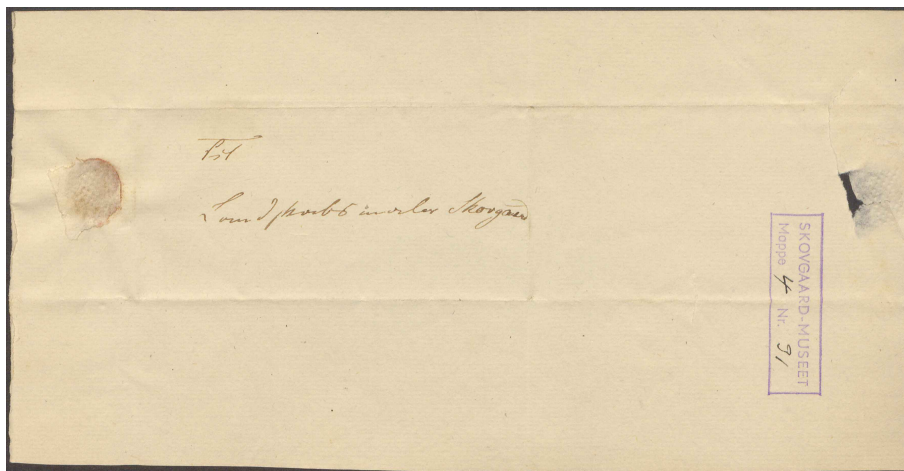 Til
Landskabsmaler Skovgaard
SKOVGAARD-MUSEET
Mappe 4 Nr. 91